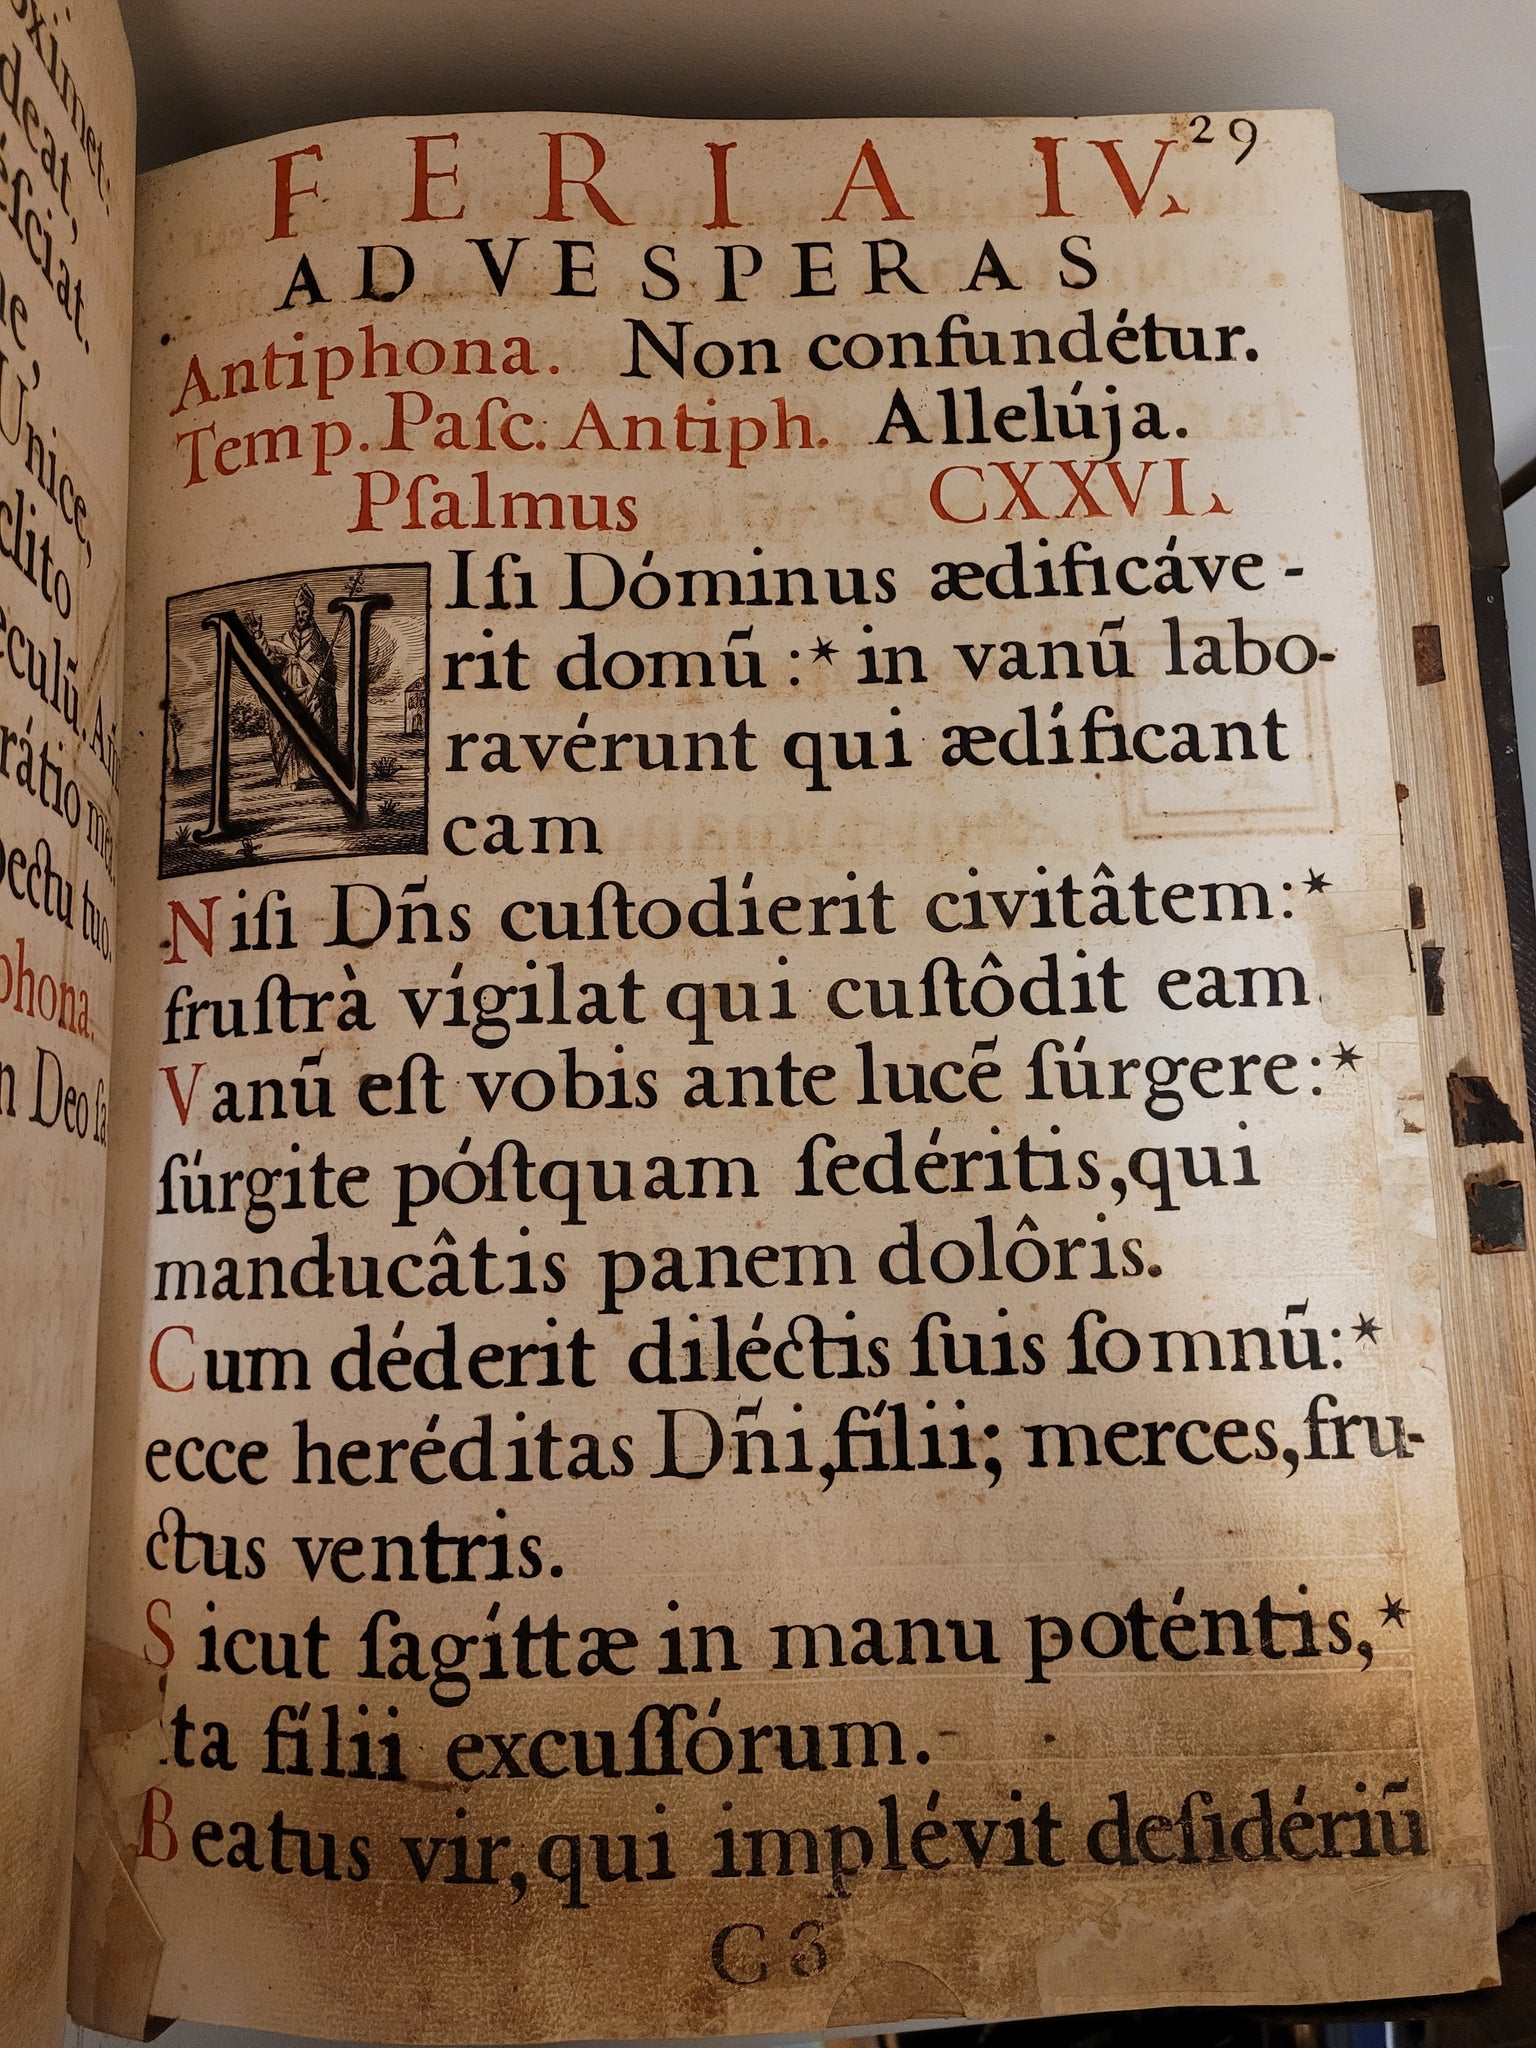 oximet:
deat,
eſciat.
ne,
Unice,
clito
eculũ. Am
rátio mea
pectu tuo.
phona.
n Deo ſa
29
FERIA IV.
AD VESPERAS
Antiphona. Non confundétur.
Temp. Paſc. Antiph. Allelúja.
Pſalmus CXXVI.
NIſi Dóminus ædificáve-
rit domũ :* in vanũ labo-
ravérunt qui ædíficant
cam
Niſi Dñs cuſtodíerit civitâtem:*
fruſtrà vígilat qui cuſtôdit eam
Vanũ eſt vobis ante lucẽ ſúrgere:*
ſúrgite póſtquam ſedéritis, qui
manducâtis panem dolôris.
Cum déderit diléctis ſuis ſomnũ:*
ecce heréditas Dñi, fílii; merces, fru-
ctus ventris.
Sicut ſagíttæ in manu poténtis,*
ita fílii excuſſórum.
Beatus vir, qui implévit deſidériũ
C 3